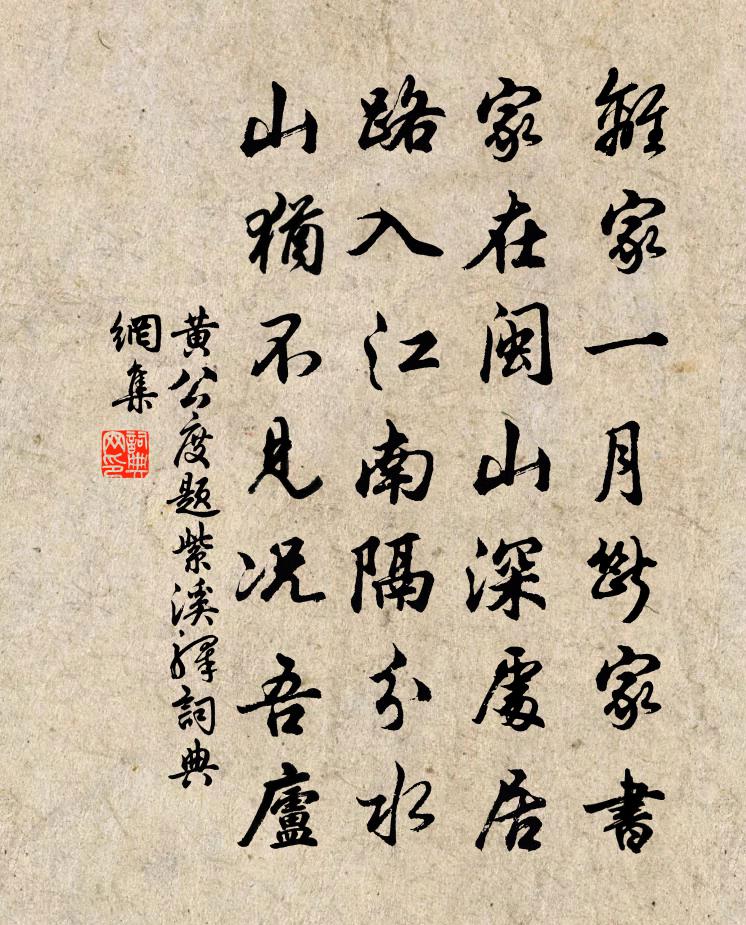 離家一月斷家書
家在閩山深處居
路入江南隔分水
山猶不見况吾廬
黃公度題紫溪驛詞典
網集
詞典
网印